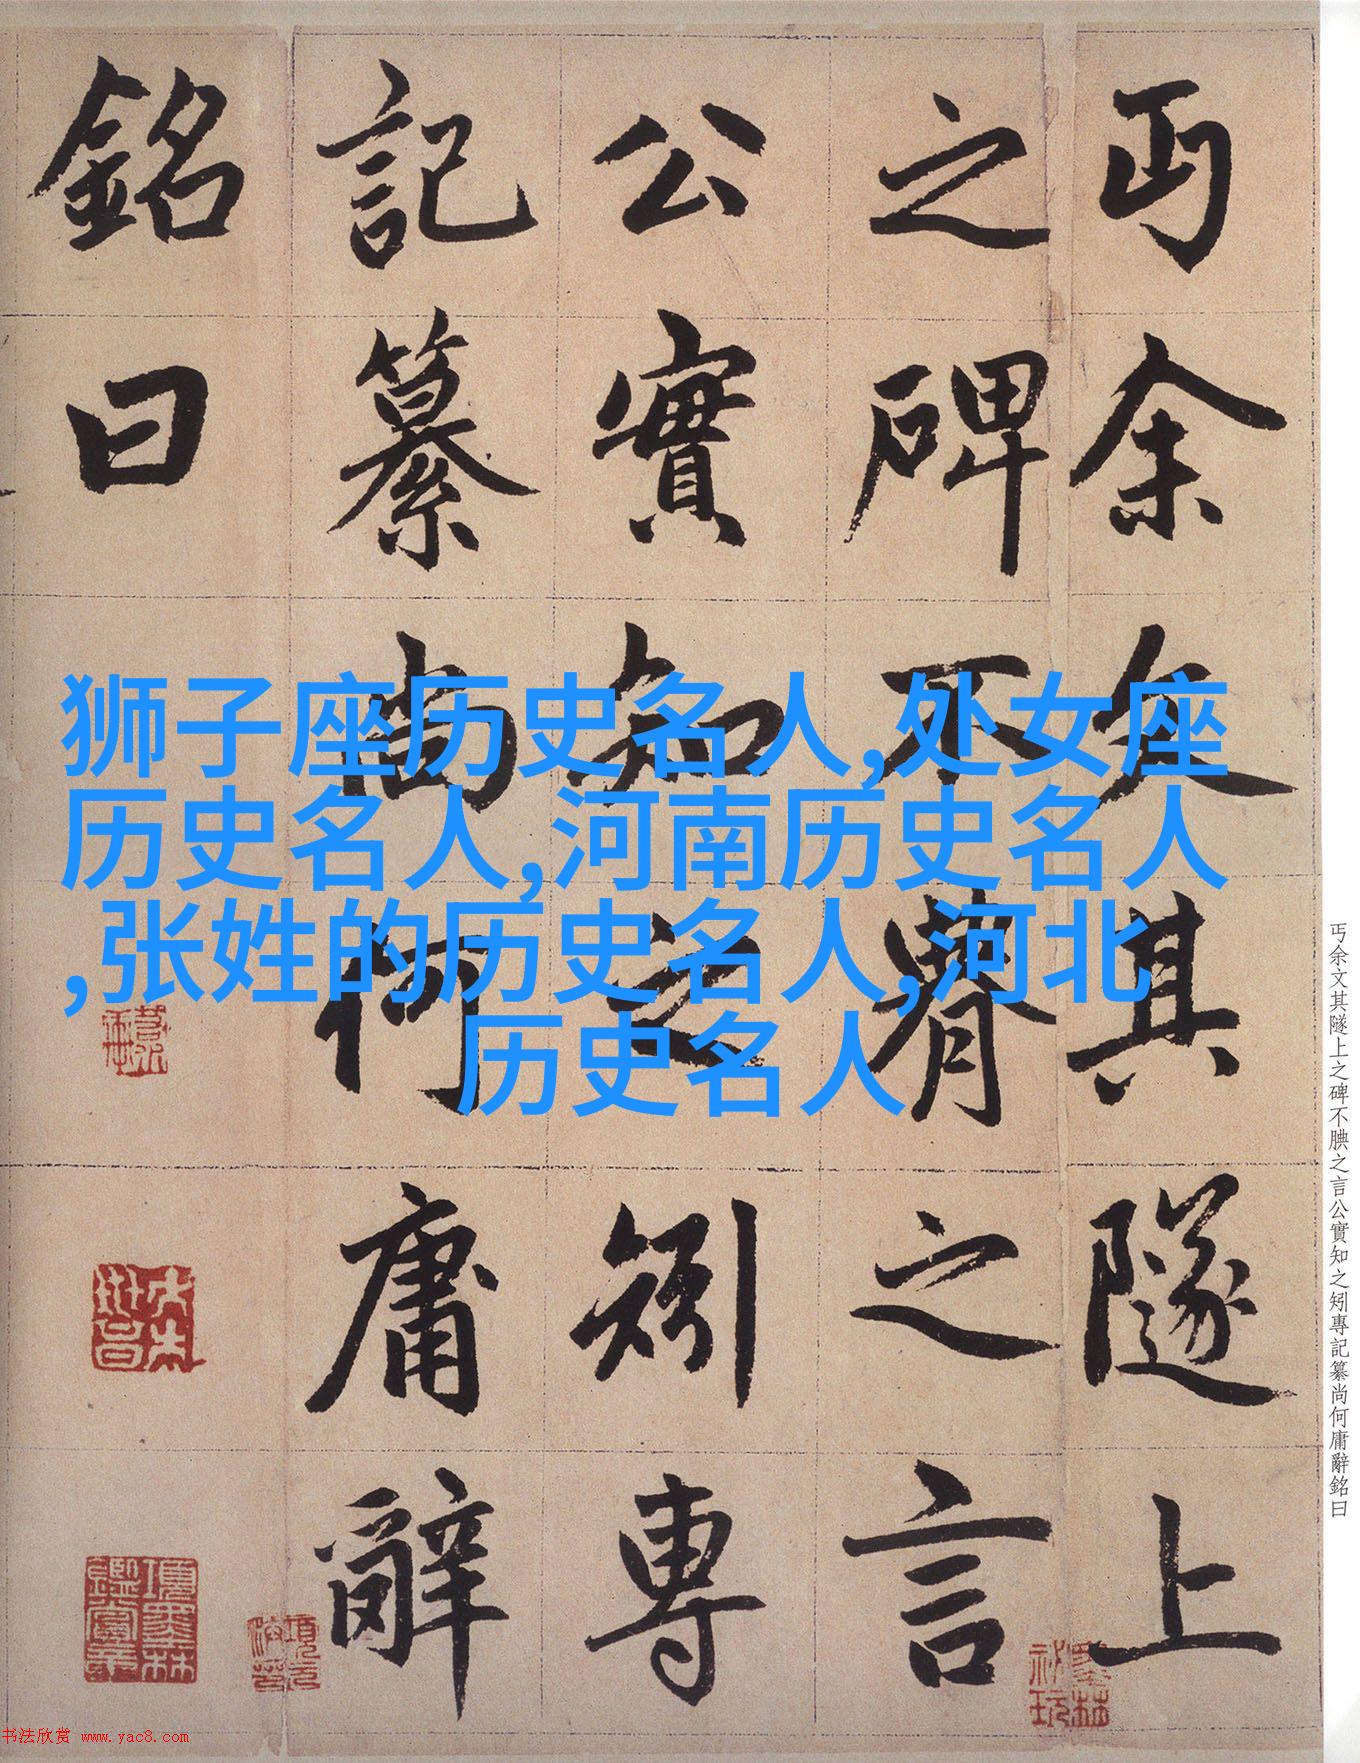 丐余文其隧上
之碑不腆之言
公實知之矧專
記纂尚何庸辭
銘曰
狮子座历史名人,处女座
历史名人,河南历史名人
,张姓的历史名人,河北
历史名人
丐余文其隧上之碑不腆之言公實知之矧專記纂尚何庸辭銘曰
項墨林鑑賞章
墨林祕玩
书法欣赏 www.yac8.com